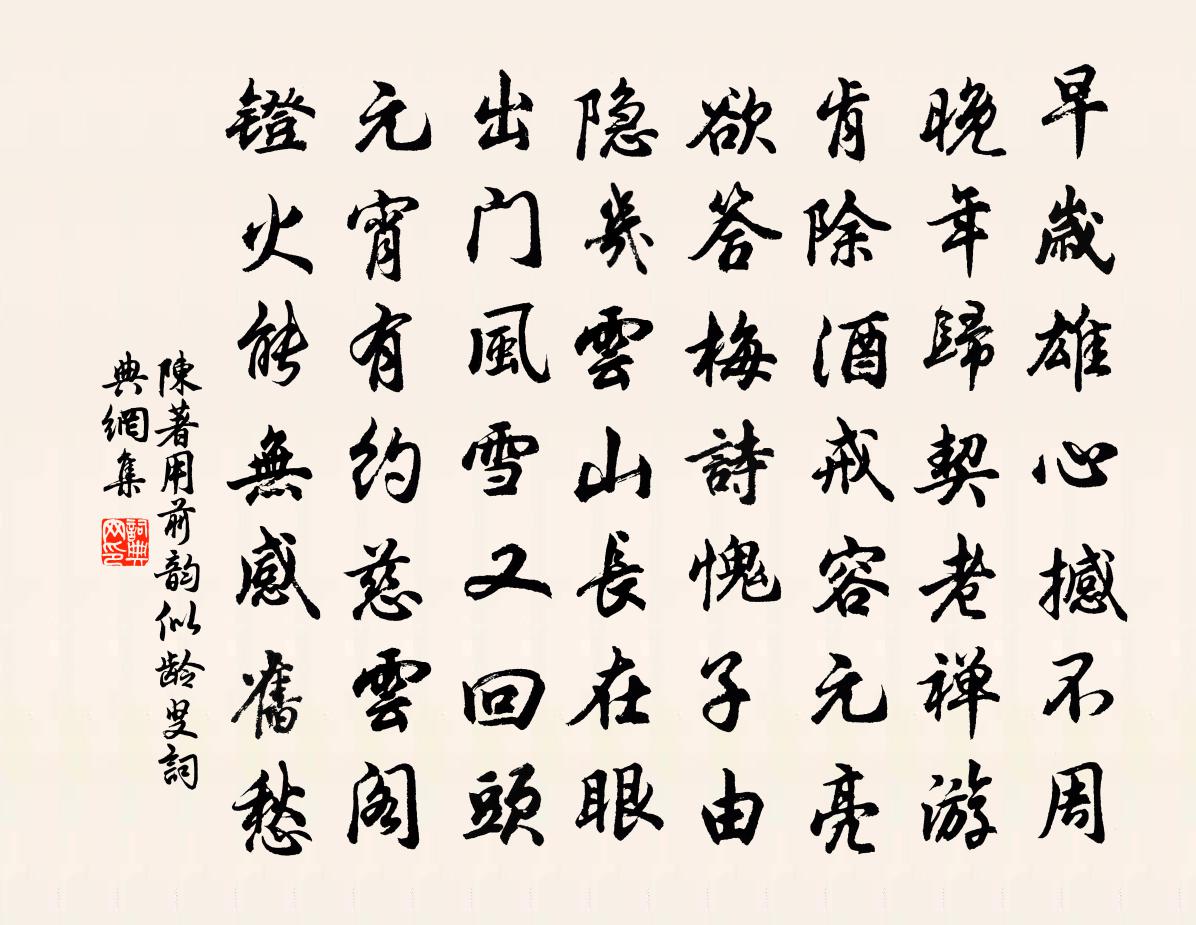 早歲雄心撼不周
晚年歸契老禅游
肯除酒戒容元亮
欲答梅詩愧子由
隐几雲山長在眼
出门風雪又回頭
元宵有约慈雲阁
鐙火能無感舊愁
陳著用前韵似龄叟詞
典網集
詞典网印